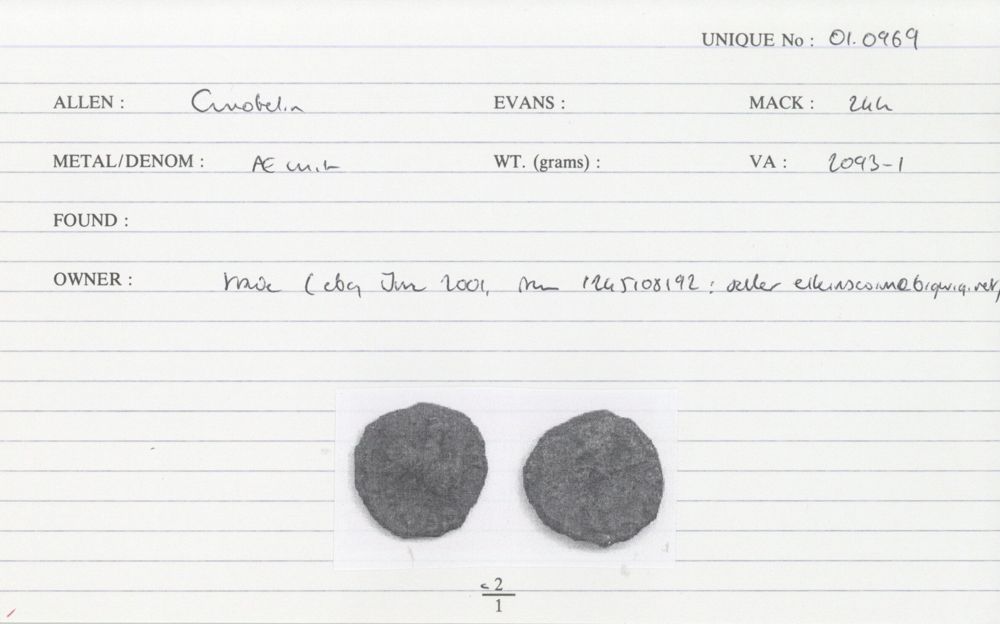 UNIQUE No : 01.0969
ALLEN : Cunobelin EVANS : MACK : 244
METAL/DENOM : Æ unit WT. (grams) : VA : 2093-1
FOUND :
OWNER : trade (ebay Jun 2001, 1245108192 : seller
2
1